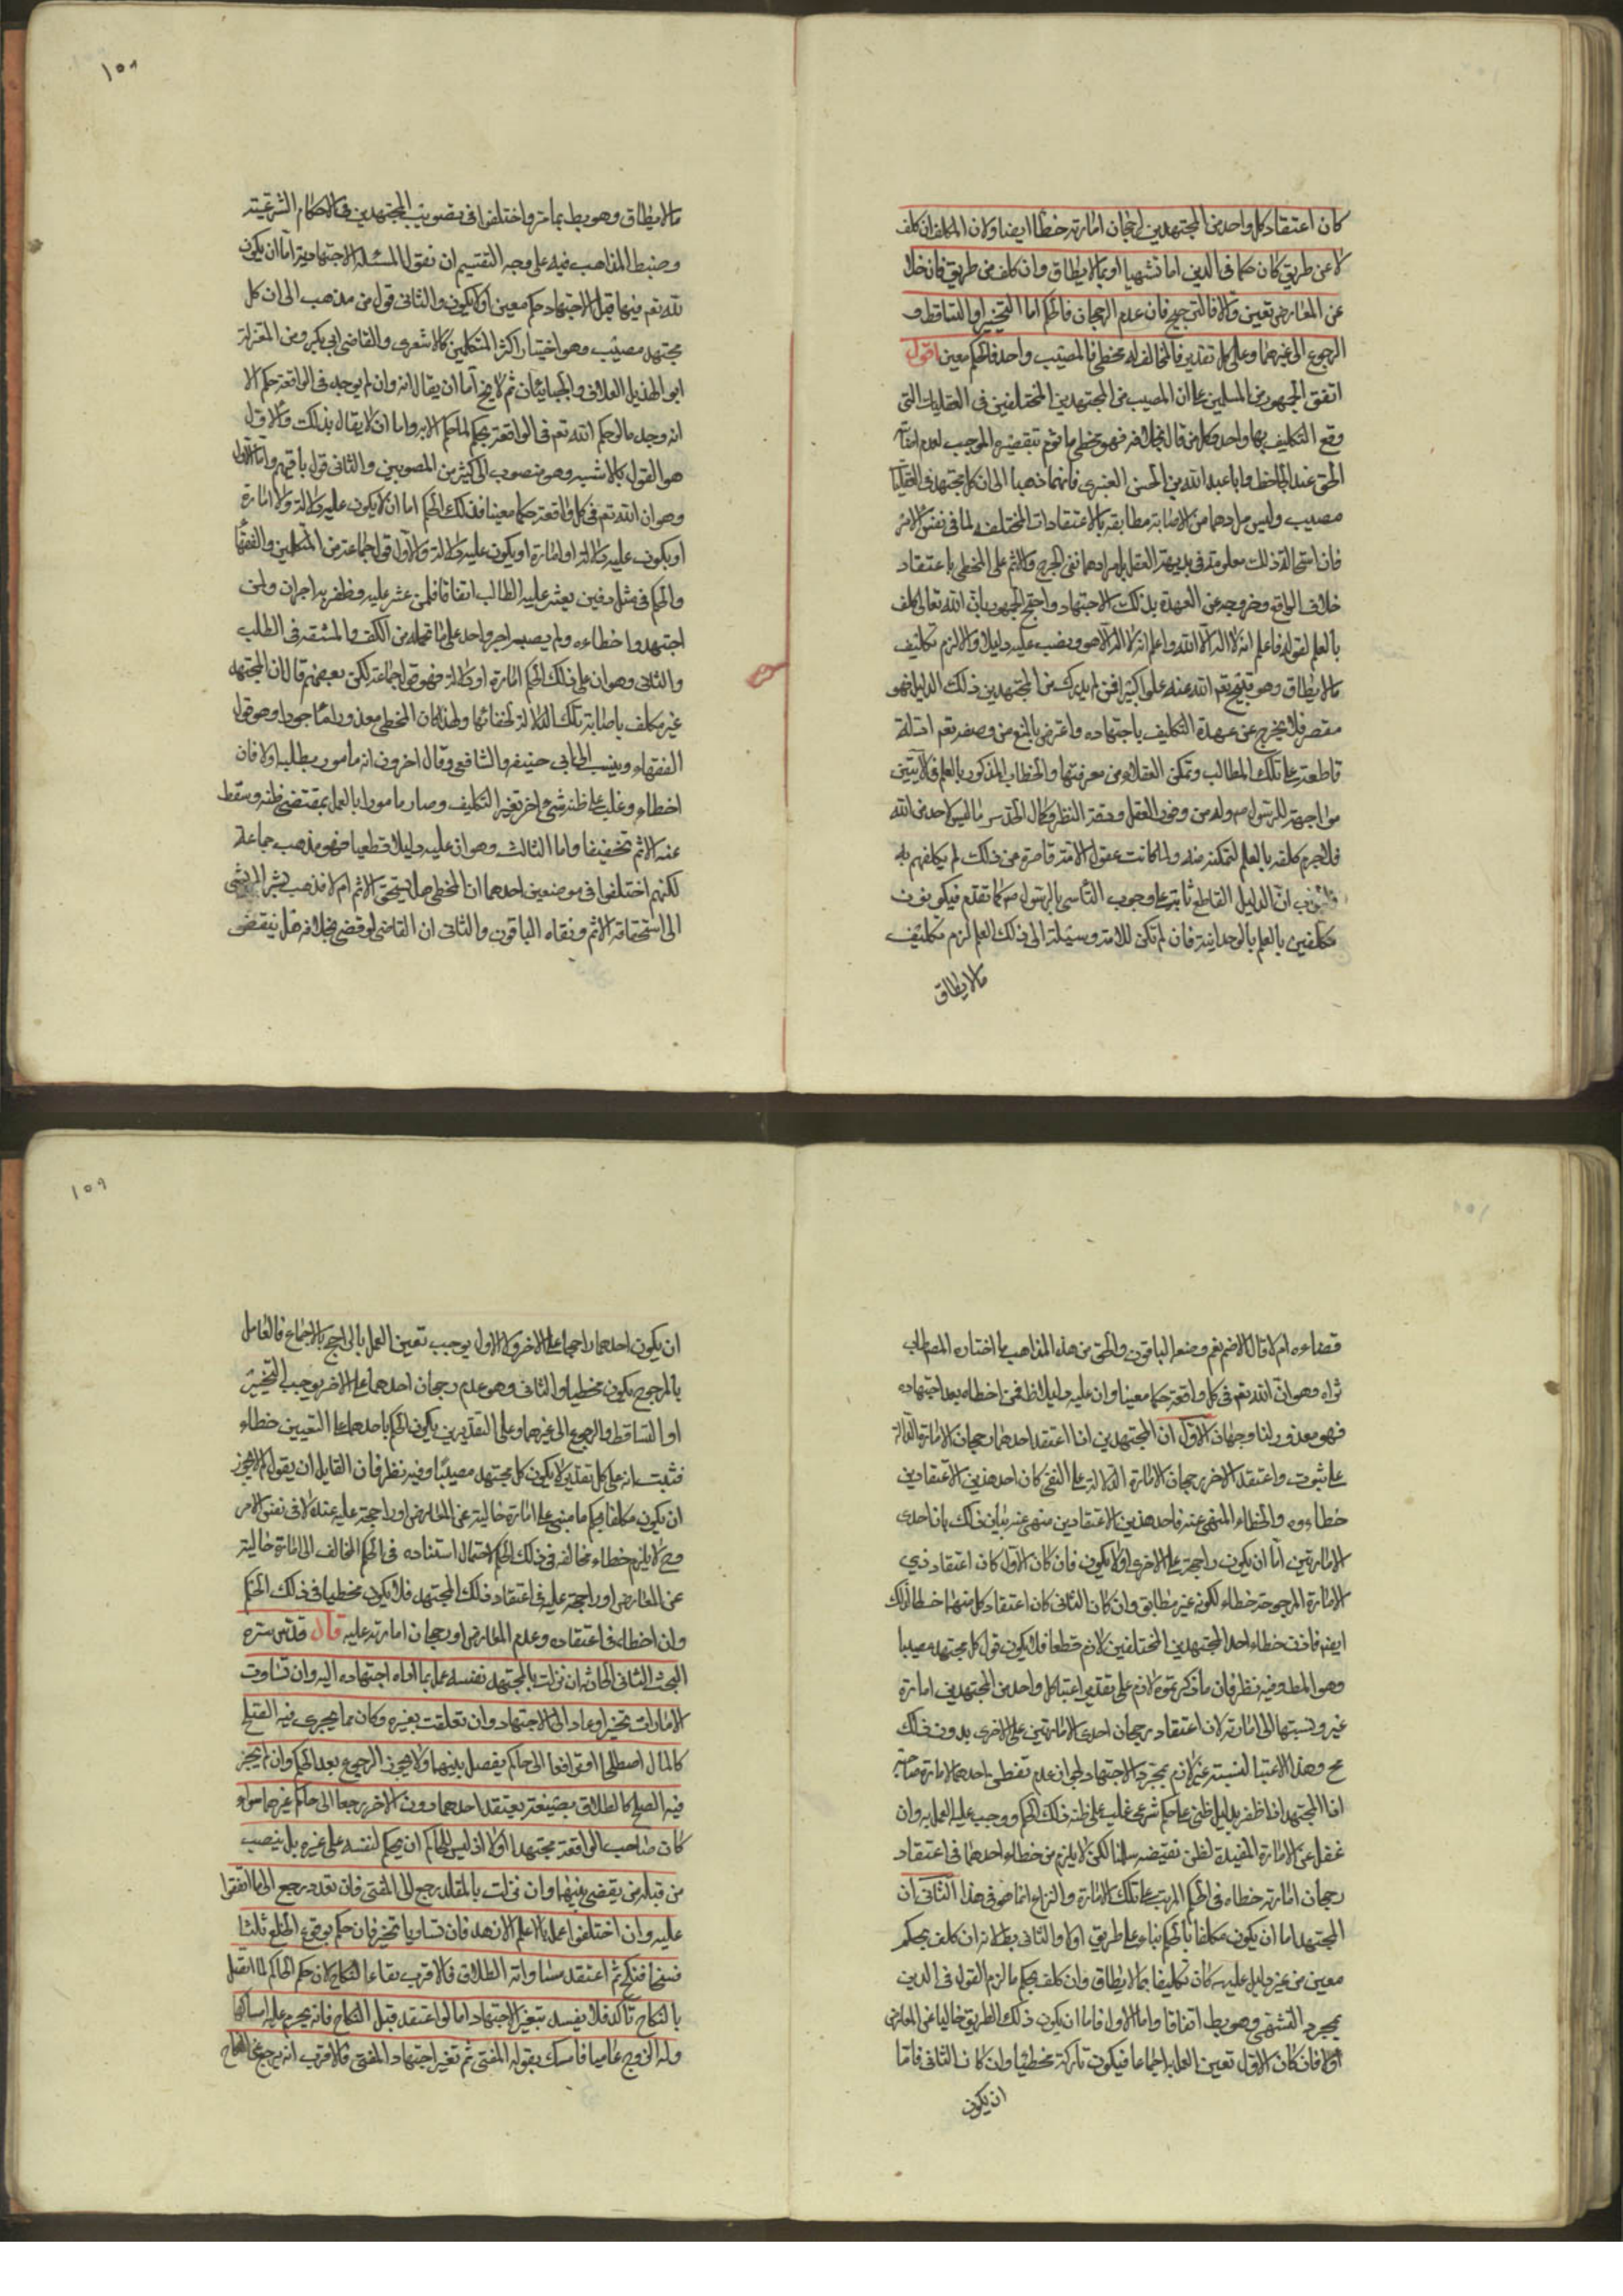 كان اعتقاد كل واحد من المجتهدين رجحان امارته خطأ ايضا ولان المكلف ان كلف
لا عن طريق كان حكما في الدين اما تشهيا او بما لا يطاق وان كلف من طريق فان خلا
عن المعارض تعين والا فالترجيح فان عدم الرجحان فالحكم اما التخيير او التساقط و
الرجوع الى غيرهما وعلى كل تقدير فالمخالف له مخطئ فالمصيب واحد فالحكم معين اقول
اتفق الجمهور من المسلمين على ان المصيب من المجتهدين المختلفين في العقليات التي
وقع التكليف بها واحد وكل من قال بخلافه فهو مخطئ ماثوم بتقصيره الموجب لعدم اصابة
الحق عند الجاحظ وابا عبد الله بن الحسن العنبري فانهما ذهبا الى ان كل مجتهد في العقليات
مصيب وليس مرادهما من الاصابة مطابقة الاعتقادات المختلفة لما في نفس الامر
فان استحالة ذلك معلومة في بديهة العقل بل مرادهما نفي الحرج والاثم على المخطئ باعتقاد
خلاف الواقع وخروجه عن العهدة بذلك الاجتهاد واحتج الجمهور بان الله تعالى كلف
بالعلم لقوله فاعلم انه لا اله الا الله واعلم انه لا اله الا هو ونصب عليه دليلا والا لزم تكليف
ما لا يطاق وهو قبيح تعم الله عنه علوا كبيرا فمن لم يدرك من المجتهدين ذلك الدليل فهو
مقصر فلا يخرج عن عهدة التكليف باجتهاده واعترض بالمنع من وصفه تعم ادلة
قاطعة على تلك المطالب وتمكن العقلاء من معرفتها والخطاب المذكور بالعلم في الآيتين
مواجهة للرسول ص وله من وفور العقل وصحة النظر وكمال الحدس ما ليس لاحد من الله
فلا جرم كلفه بالعلم لتمكنه منه ولما كانت عقول الامة قاصرة عن ذلك لم يكلفهم به
والجواب ان الدليل القاطع ثابت على وجوب التأسي بالرسول ص كما تقدم فيكونون
مكلفين بالعلم بالوحدانية فان لم تكن للامة وسيلة الى ذلك العلم لزم تكليف
ما لا يطاق
١٥٨
ما لا يطاق وهو بط بما مر واختلفوا في تصويب المجتهدين في الاحكام الشرعية
وضبط المذاهب فيه على وجه التقسيم ان نقول المسئلة الاجتهادية اما ان يكون
لله تعم فيها قبل الاجتهاد حكم معين او لا يكون والثاني قول من ذهب الى ان كل
مجتهد مصيب وهو اختيار اكثر المتكلمين كالاشعري والقاضي ابي بكر ومن المعتزلة
ابو الهذيل العلاف والجبائيان ثم لا يخ اما ان يقال انه وان لم يوجد في الواقعة حكم الا
انه وجد ما لو حكم الله تعم في الواقعة بحكم لما حكم الا به واما ان لا يقال بذلك والاول
هو القول بالاشبه وهو منصوب الى كثير من المصوبين والثاني قول باقيهم واما الاول
وهو ان الله تعم في كل واقعة حكما معينا فذلك الحكم اما ان لا يكون عليه دلالة ولا امارة
او يكون عليه دلالة او امارة او يكون عليه دلالة والاول قول جماعة من المتكلمين والفقها
والحكم في مثل دفين يعثر عليه الطالب اتفاقا فلمن عثر عليه وظفر به اجران ولمن
اجتهد واخطاءه ولم يصبه اجر واحد على ما تحمله من الكلف والمشقة في الطلب
والثاني وهو ان على ذلك الحكم امارة او دلالة فهو قول جماعة لكن بعضهم قال ان المجتهد
غير مكلف باصابة تلك الدلالة لخفائها ولهذا كان المخطئ معذورا ماجورا وهو قول
الفقهاء وينسب الى ابي حنيفه والشافعي وقال اخرون انه مامور بطلبه اولا فان
اخطاء وغلب على ظنه شئ اخر تغير التكليف وصار مامورا بالعمل بمقتضى ظنه وسقط
عنه الاثم تخفيفا واما الثالث وهو ان عليه دليلا قطعيا فهو مذهب جماعة
لكنهم اختلفوا في موضعين احدهما ان المخطئ هل يستحق الاثم ام لا فذهب بشر المريسي
الى استحقاقه الاثم ونفاه الباقون والثاني ان القاضي لو قضى بخلافه هل ينقض
قضاءه ام لا قال الاصم نعم ومنعه الباقون والحق من هذه المذاهب ما اختاره المص طاب
ثراه وهو ان الله تعم في كل واقعة حكما معينا وان عليه دليلا ظنا فمن اخطاه بعد اجتهاده
فهو معذور لنا وجهان الاول ان المجتهدين اذا اعتقد احدهما رجحان الامارة الدالة
على ثبوت واعتقد الاخر رجحان الامارة الدلالة على النفي كان احد هذين الاعتقادين
خطاء وه والخطاء المنهي عنه فاحد هذين الاعتقادين منهي عنه بيان ذلك بان احدى
الامارتين اما ان يكون راجحة على الاخرى او لا يكون فان كان الاول كان اعتقاد ذي
الامارة المرجوحة خطاء لكونه غير مطابق وان كان الثاني كان اعتقاد كل منهما خطا لذلك
ايضا فاذن خطاء احد المجتهدين المختلفين لازم قطعا فلا يكون قول كل مجتهد مصيبا
وهو المط وفيه نظر فان ما ذكرتموه لازم على تقدير اعتبار كل واحد من المجتهدين امارة
غيره ونسبتها الى امارته لان اعتقاد رجحان احدى الامارتين على الاخرى بدون ذلك
مح وهذا الاعتبار والنسبة غير لازم بمجرد الاجتهاد لجواز عدم تفطن احدهما لامارة صاحبه
اذا المجتهد اذا ظفر بدليل ظني على حكم شرعي غلب على ظنه ذلك الحكم ووجب عليه العمل به وان
غفل عن الامارة المفيدة لظن نقيضه سلمنا لكن لا يلزم من خطاء احدهما في اعتقاد
رجحان امارته خطاه في الحكم المرتب على تلك الامارة والنزاع انما هو في هذا الثاني ان
المجتهد اما ان يكون مكلفا بالحكم بناء على طريق اولا والثاني بط لانه ان كلف بحكم
معين من غير دليل عليه كان تكليفا بما لا يطاق وان كلف بحكم ما لزم القول في الدين
بمجرد التشهي وهو بط اتفاقا واما الاول فاما ان يكون ذلك الطريق خاليا عن المعارض
اولا فان كان الاول تعين العمل به اجماعا فيكون تاركه مخطئا وان كان الثاني فاما
ان يكون
١٥٩
ان يكون احدهما راجحا على الاخر والاول يوجب تعين العمل بالراجح بالاجماع فالعامل
بالمرجوح يكون مخطيا والثاني وهو عدم رجحان احدهما على الاخر يوجب التخيير
او التساقط والرجوع الى غيرهما وعلى التقديرين يكون الحكم باحدهما على التعيين خطاء
فثبت انه على كل تقدير لا يكون كل مجتهد مصيبا وفيه نظر فان القايل ان يقول لم لا يجوز
ان يكون مكلفا بحكم ما مبني على امارة خالية عن المعارض او راجحة عليه عنده لا في نفس الامر
وح لا يلزم خطاء مخالفه في ذلك الحكم لاحتمال استناده في الحكم المخالف الى امارة خالية
عن المعارض او راجحة عليه في اعتقاد ذلك المجتهد فلا يكون مخطيا في ذلك الحكم
وان اخطاء في اعتقاده وعدم المعارض او رجحان امارته عليه قال قدس سره
البحث الثاني الحادثة ان نزلت بالمجتهد نفسه عمل بما اداه اجتهاده اليه وان تساوت
الامارات تخير او عاد الى الاجتهاد وان تعلقت بغيره وكان مما يجري فيه الصلح
كالمال اصطلحا او ترافعا الى حاكم يفصل بينهما ولا يجوز الرجوع بعد الحكم وان لم يجز
فيه الصلح كالطلاق بصيغة يعتقد احدهما دون الاخر رجعا الى حاكم غيرهما سواء
كان صاحب الواقعة مجتهدا اولا اذ ليس للحاكم ان يحكم لنفسه على غيره بل ينصب
من قبله من يقضي بينهما وان نزلت بالمقلد رجع الى المفتي فان تعدد رجع الى ما اتفقوا
عليه وان اختلفوا عمل بالاعلم الازهد فان تساويا تخير فان حكم بوقوع الخلع ثلثا
فسخا فنكح ثم اعتقد مساواته الطلاق فالاقرب بقاء النكاح لان حكم الحاكم لما اتصل
بالنكاح تأكد فلا يفسد بتغير الاجتهاد اما لو اعتقد قبل النكاح فانه يحرم عليه امساكها
ولو الزوج عاميا فامسك بقول المفتي ثم تغير اجتهاد المفتي فالاقرب انه يرجع عن النكاح